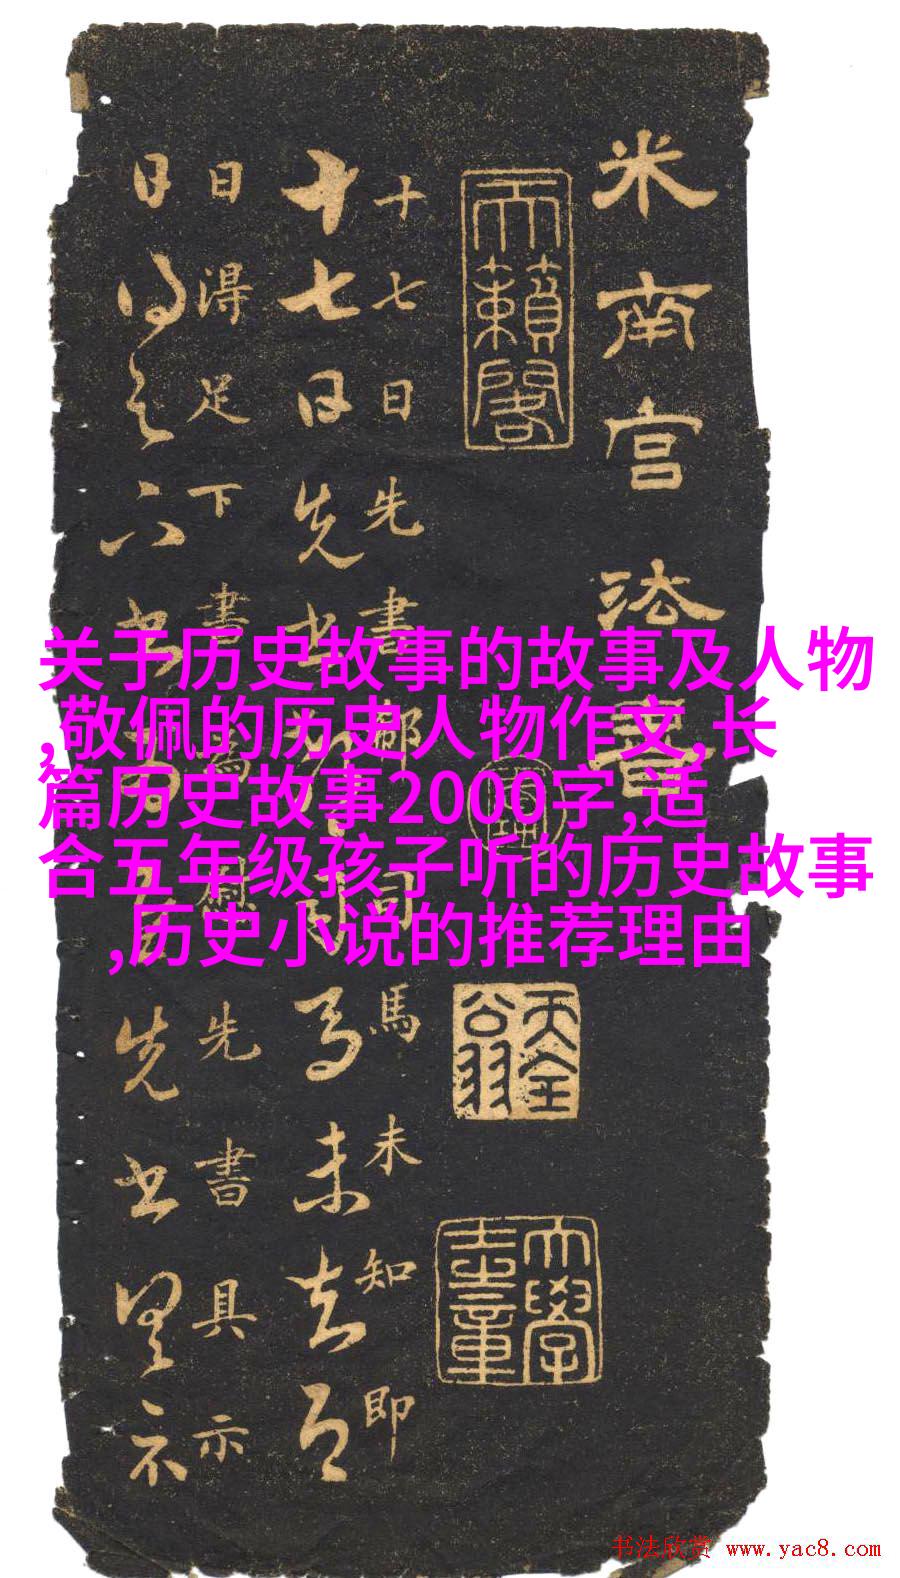 米南宫法書
天籟閣
十七日先書郗司馬未知即
十七日先書郗司馬未去即
日得足下書為慰先書具示
日得足下書為慰先書具示
关于历史故事的故事及人物
,敬佩的历史人物作文,长
篇历史故事2000字,适
合五年级孩子听的历史故事
,历史小说的推荐理由
书法欣赏 www.yac8.com